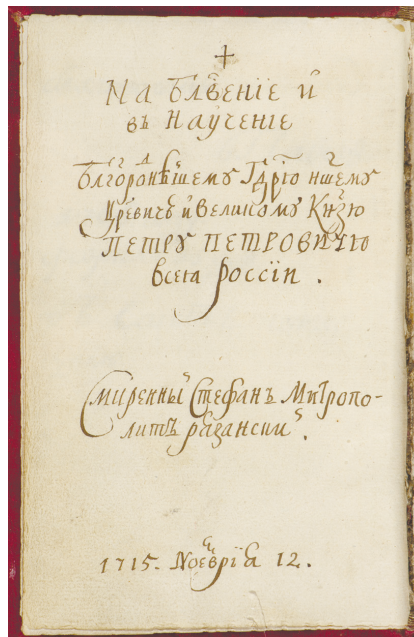 +
На блвенїе и
въ научение
Блгороднѣшему Гдрю ншему
Цревичꙋ и великому Кнзю
ПЕТРУ ПЕТРОВИЧЮ
всеѧ россїи .
Смиренный Стефанъ Митропо-
литъ рѧзанскии .
1715. Ноеврїа 12.